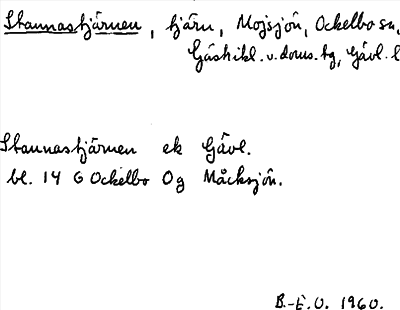 Stannastjärnen, tjärn, Mojsjön, Ockelbo sn,
Gästrikl. v. doms. tg, Gävl. l
Stannastjärnen ek Gävl.
bl. 14 G Ockelbo Og Måcksjön.
B.-E.O. 1960.